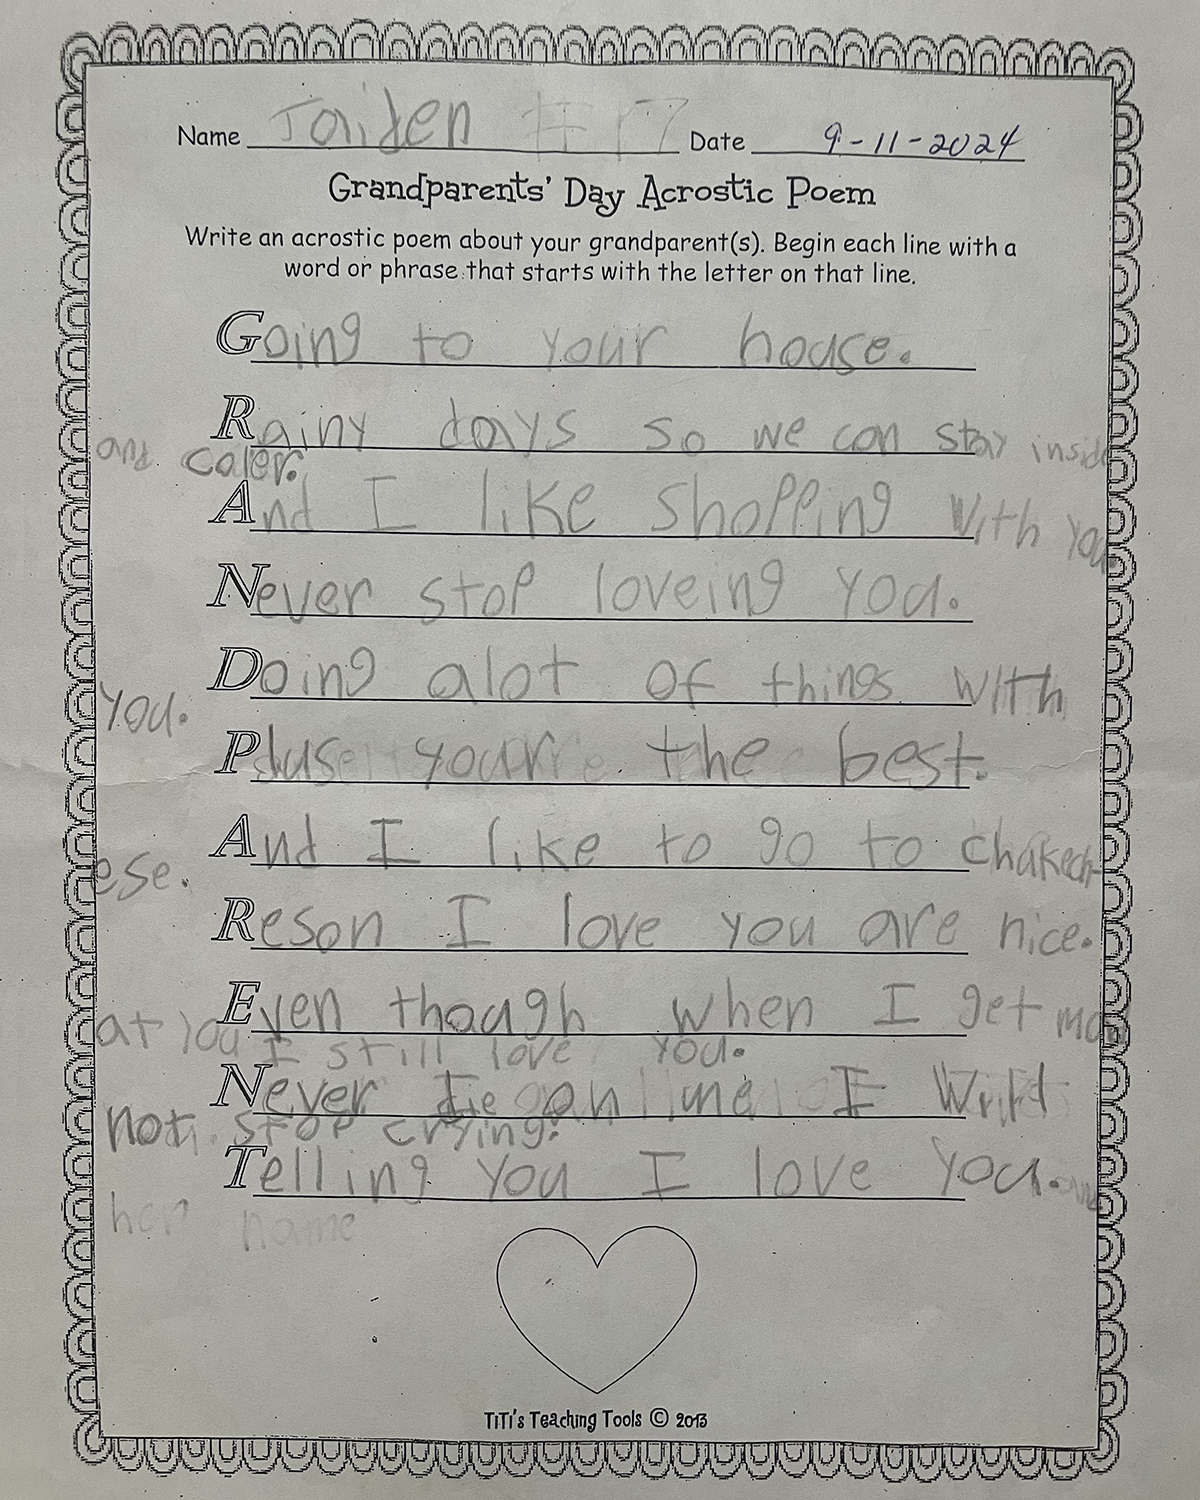 Name Jaiden #17 Date 9-11-2024
Grandparents' Day Acrostic Poem
Write an acrostic poem about your grandparent(s). Begin each line with a
word or phrase that starts with the letter on that line.
Going to your house.
Rainy days so we can stay inside
and coler.
And I like shopping with you
Never stop loveing you.
Doing alot of things with
you.
Pluse your the best.
And I like to go to chakech-
ese.
Reson I love you are nice.
Even though when I get mad
at you I still love you.
Never on me I
not stop crying.
Telling you I love you.
name
TiTi's Teaching Tools © 2013